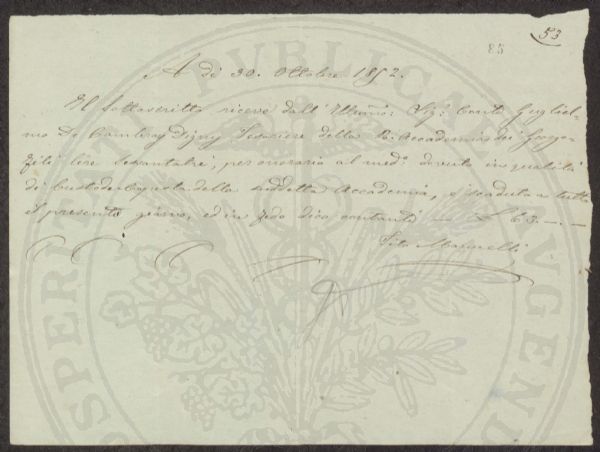 53
83
A dì 30. Ottobre 1852.
Il Sottoscritto riceve dall' Illmo: Sig: Conte Gugliel-
mo De Cambray Digny Tesoriere della R: Accademia dei Georgo-
fili lire Sessantatrè, per onorario al med: dovuto in qualità
di Custode della suddetta Accademia, a tutto
il presente giorno, ed in fede dico contanti — £ 63.—.—
Tito Marinelli
PROSPERITATI PUBLICAE AUGENDAE